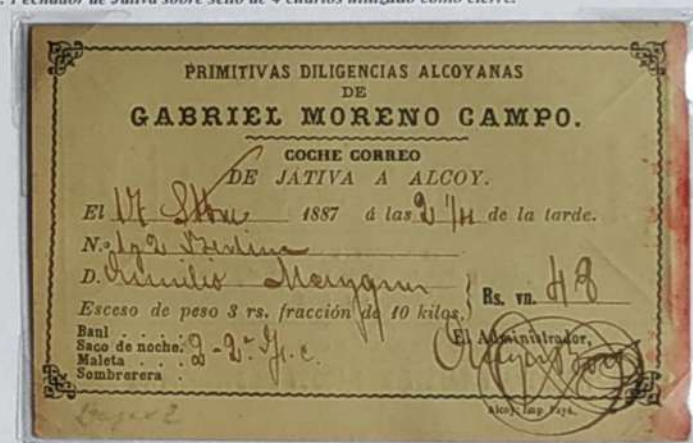 . Fechador de Játiva sobre sello de 4 cuartos utilizado como cierre.
PRIMITIVAS DILIGENCIAS ALCOYANAS
DE
GABRIEL MORENO CAMPO.
COCHE CORREO
DE JÁTIVA A ALCOY.
El 17 1887 á las 2 de la tarde.
N.º 1 y 2 Berlina
D.
Rs. vn. 48
Esceso de peso 3 rs. fracción de 10 kilos.
Baul . . . . .
Saco de noche. 2 - 2
Maleta . . .
Sombrerera .
El Administrador,
Alcoy: Imp. Payá.